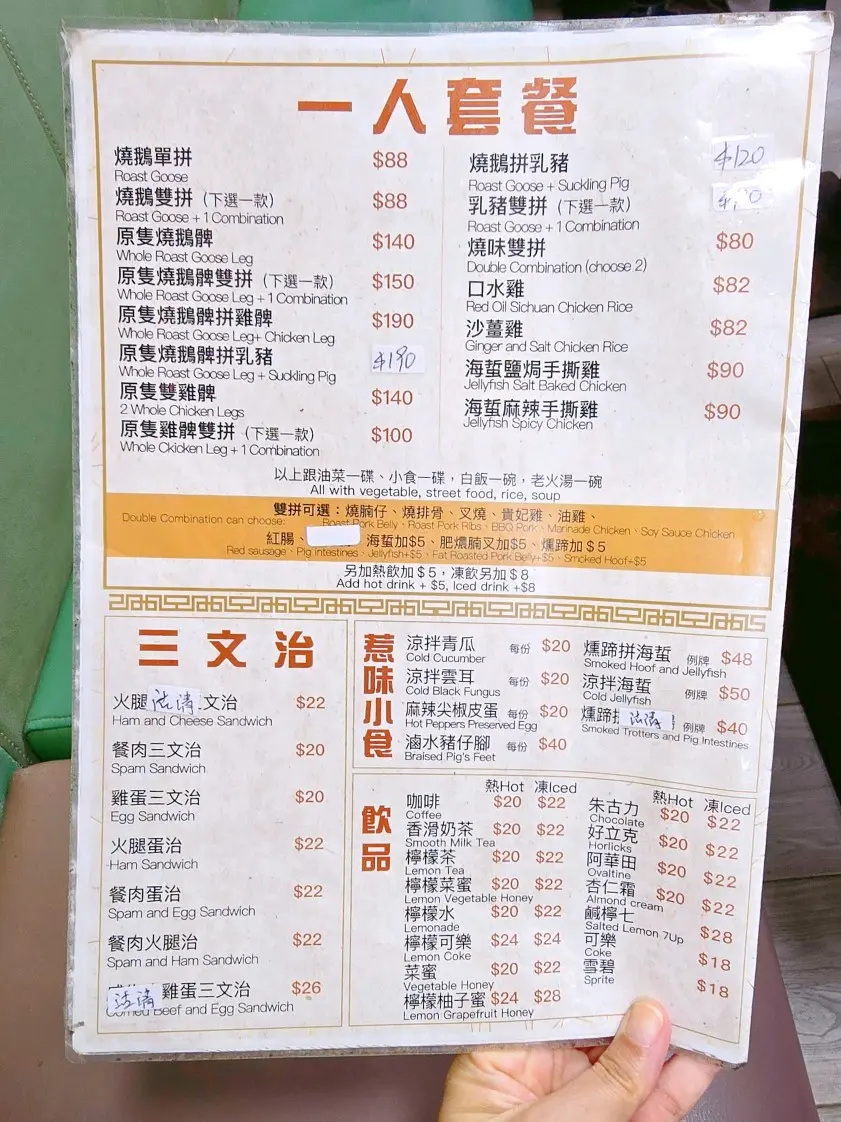 一人套餐
燒鵝單拼 $88
Roast Goose
燒鵝雙拼（下選一款） $88
Roast Goose + 1 Combination
原隻燒鵝髀 $140
Whole Roast Goose Leg
原隻燒鵝髀雙拼（下選一款） $150
Whole Roast Goose Leg + 1 Combination
原隻燒鵝髀拼雞髀 $190
Whole Roast Goose Leg+ Chicken Leg
原隻燒鵝髀拼乳豬 $190
Whole Roast Goose Leg + Suckling Pig
原隻雙雞髀 $140
2 Whole Chicken Legs
原隻雞髀雙拼（下選一款） $100
Whole Ckicken Leg + 1 Combination
燒鵝拼乳豬 $120
Roast Goose + Suckling Pig
乳豬雙拼（下選一款）
Roast Goose + 1 Combination
燒味雙拼 $80
Double Combination (choose 2)
口水雞 $82
Red Oil Sichuan Chicken Rice
沙薑雞 $82
Ginger and Salt Chicken Rice
海蜇鹽焗手撕雞 $90
Jellyfish Salt Baked Chicken
海蜇麻辣手撕雞 $90
Jellyfish Spicy Chicken
以上跟油菜一碟、小食一碟，白飯一碗，老火湯一碗
All with vegetable, street food, rice, soup
雙拼可選：燒腩仔、燒排骨、叉燒、貴妃雞、油雞、
Double Combination can choose: Roast Pork Belly、Roast Pork Ribs、BBQ Pork、Marinade Chicken、Soy Sauce Chicken
紅腸、 海蜇加$5、肥燶腩叉加$5、燻蹄加$5
Red sausage、Pig intestines、Jellyfish+$5、Fat Roasted Pork Belly+$5、Smoked Hoof+$5
另加熱飲加$5，凍飲另加$8
Add hot drink + $5, Iced drink +$8
三文治
火腿 文治 $22
Ham and Cheese Sandwich
餐肉三文治 $20
Spam Sandwich
雞蛋三文治 $20
Egg Sandwich
火腿蛋治 $22
Ham Sandwich
餐肉蛋治 $22
Spam and Egg Sandwich
餐肉火腿治 $22
Spam and Ham Sandwich
雞蛋三文治 $26
Corned Beef and Egg Sandwich
惹味小食
涼拌青瓜 每份 $20
Cold Cucumber
涼拌雲耳 每份 $20
Cold Black Fungus
麻辣尖椒皮蛋 每份 $20
Hot Peppers Preserved Egg
滷水豬仔腳 每份 $40
Braised Pig's Feet
燻蹄拼海蜇 例牌 $48
Smoked Hoof and Jellyfish
涼拌海蜇 例牌 $50
Cold Jellyfish
燻蹄 例牌 $40
Smoked Trotters and Pig Intestines
飲品
熱Hot 凍Iced
咖啡 $20 $22
Coffee
香滑奶茶 $20 $22
Smooth Milk Tea
檸檬茶 $20 $22
Lemon Tea
檸檬菜蜜 $20 $22
Lemon Vegetable Honey
檸檬水 $20 $22
Lemonade
檸檬可樂 $24 $24
Lemon Coke
菜蜜 $20 $22
Vegetable Honey
檸檬柚子蜜 $24 $28
Lemon Grapefruit Honey
熱Hot 凍Iced
朱古力 $20 $22
Chocolate
好立克 $20 $22
Horlicks
阿華田 $20 $22
Ovaltine
杏仁霜 $20 $22
Almond cream
鹹檸七 $28
Salted Lemon 7Up
可樂 $18
Coke
雪碧 $18
Sprite